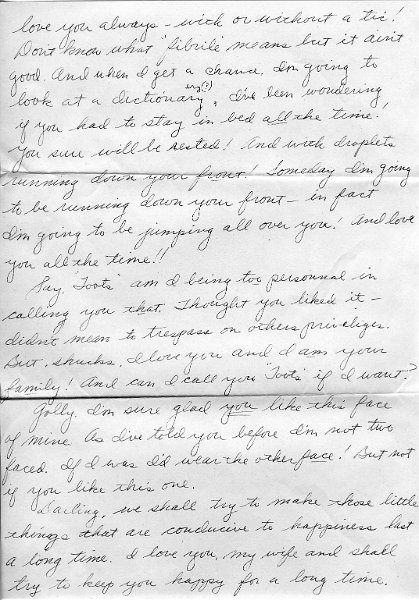 love you always - with or without a tic!
Don't know what "fibrile" means but it ain't
good. And when I get a chance, I'm going to
look at a dictionary ery(?). I've been wondering
if you had to stay in bed all the time!
You sure will be rested! And with droplets
running down your front! Someday I'm going
to be running down your front - in fact
I'm going to be jumping all over you! And love
you all the time!!
Say "Toots" am I being too personnal in
calling you that. Thought you liked it -
didn't mean to trespass on others priveliges.
But, shucks, I love you and I am your
family! And can I call you "Toots" if I want?
Golly I'm sure glad you like this face
of mine. As I've told you before I'm not two
faced. If I was I'd wear the other face! But not
if you like this one.
Darling, we shall try to make those little
things that are conducive to happiness last
a long time. I love you, my wife and shall
try to keep you happy for a long time.